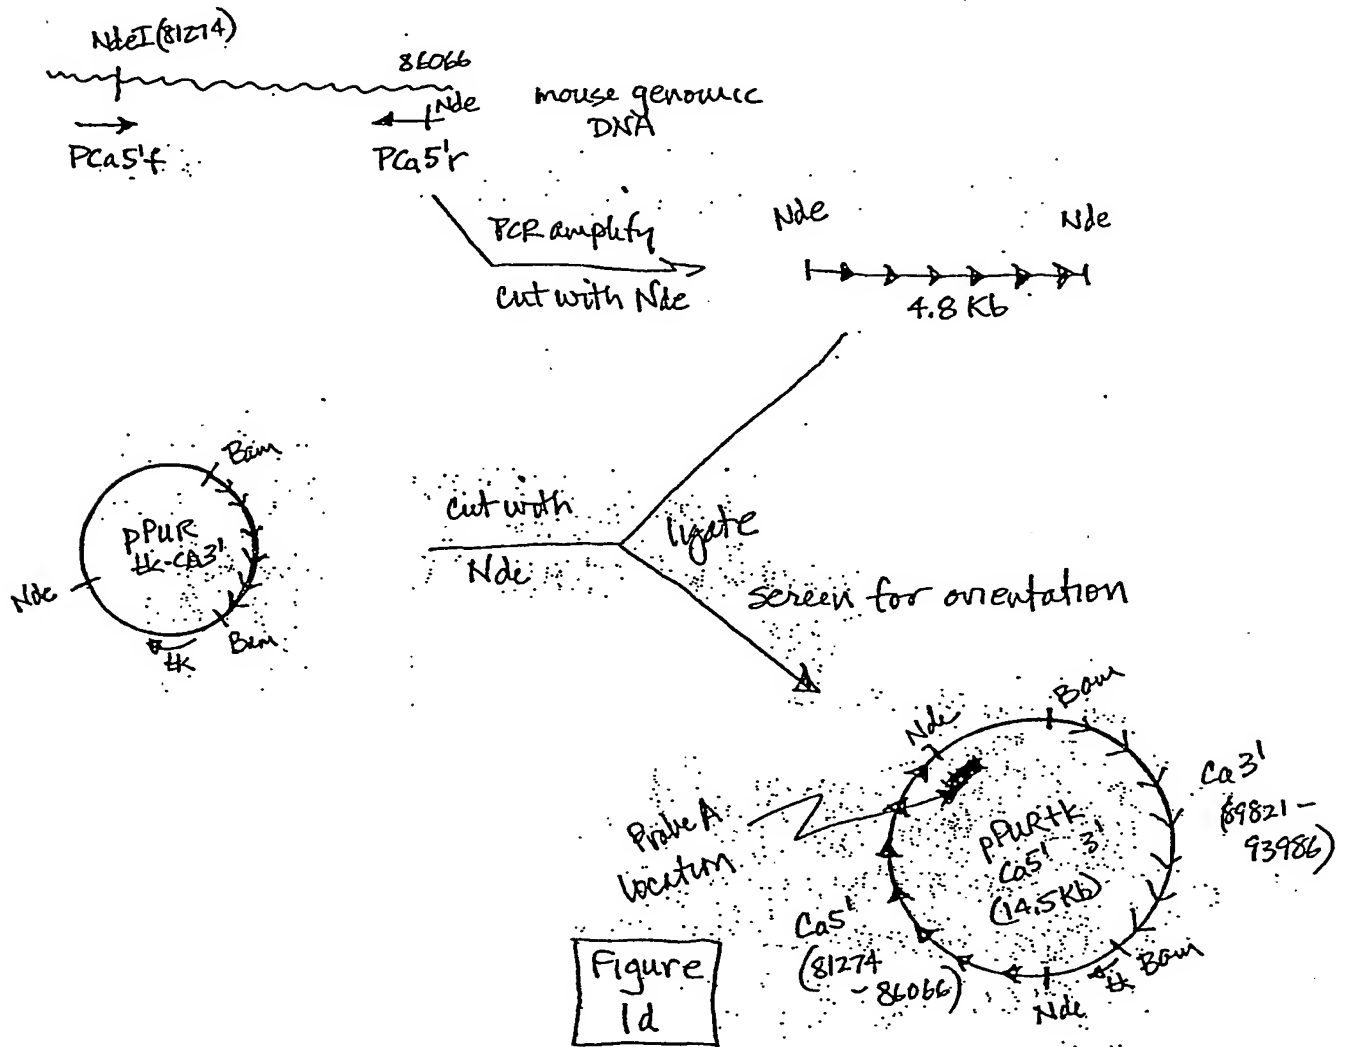 NdeI(81274)
86066
Nde
mouse genomic
DNA
PCa5'f
PCa5'r
PCR amplify
cut with Nde
Nde
Nde
4.8 Kb
Bam
pPUR
tk-CA3'
Nde
Bam
tk
cut with
Nde
ligate
screen for orientation
Nde
Bam
Ca3'
(89821 -
93986)
Probe A
location
pPURtk
Ca5' 3'
(14.5Kb)
Ca5'
(81274
- 86066)
Bam
tk
Nde
Figure
1d